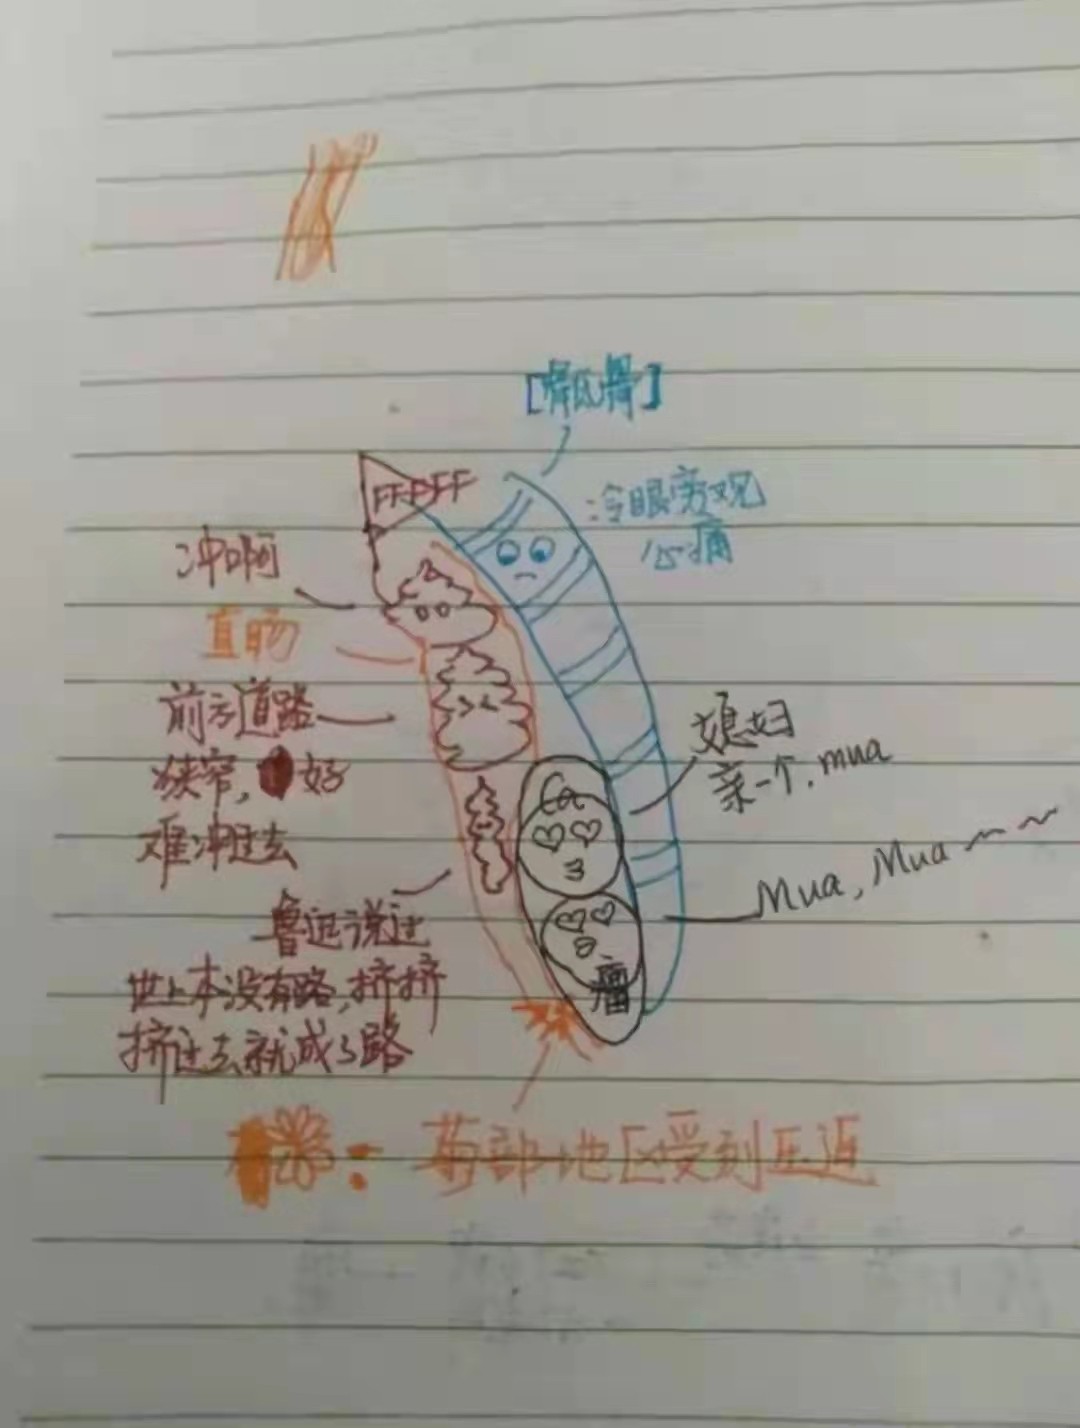 [脊尾骨]
FFFFF
冷眼旁观
心痛
冲啊
直肠
前方道路
狭窄，好
难冲过去
媳妇
亲一个.mua
Mua，Mua~~
鲁迅说过
世上本没有路，挤挤
挤过去就成了路
瘤
：菊部地区受到压迫